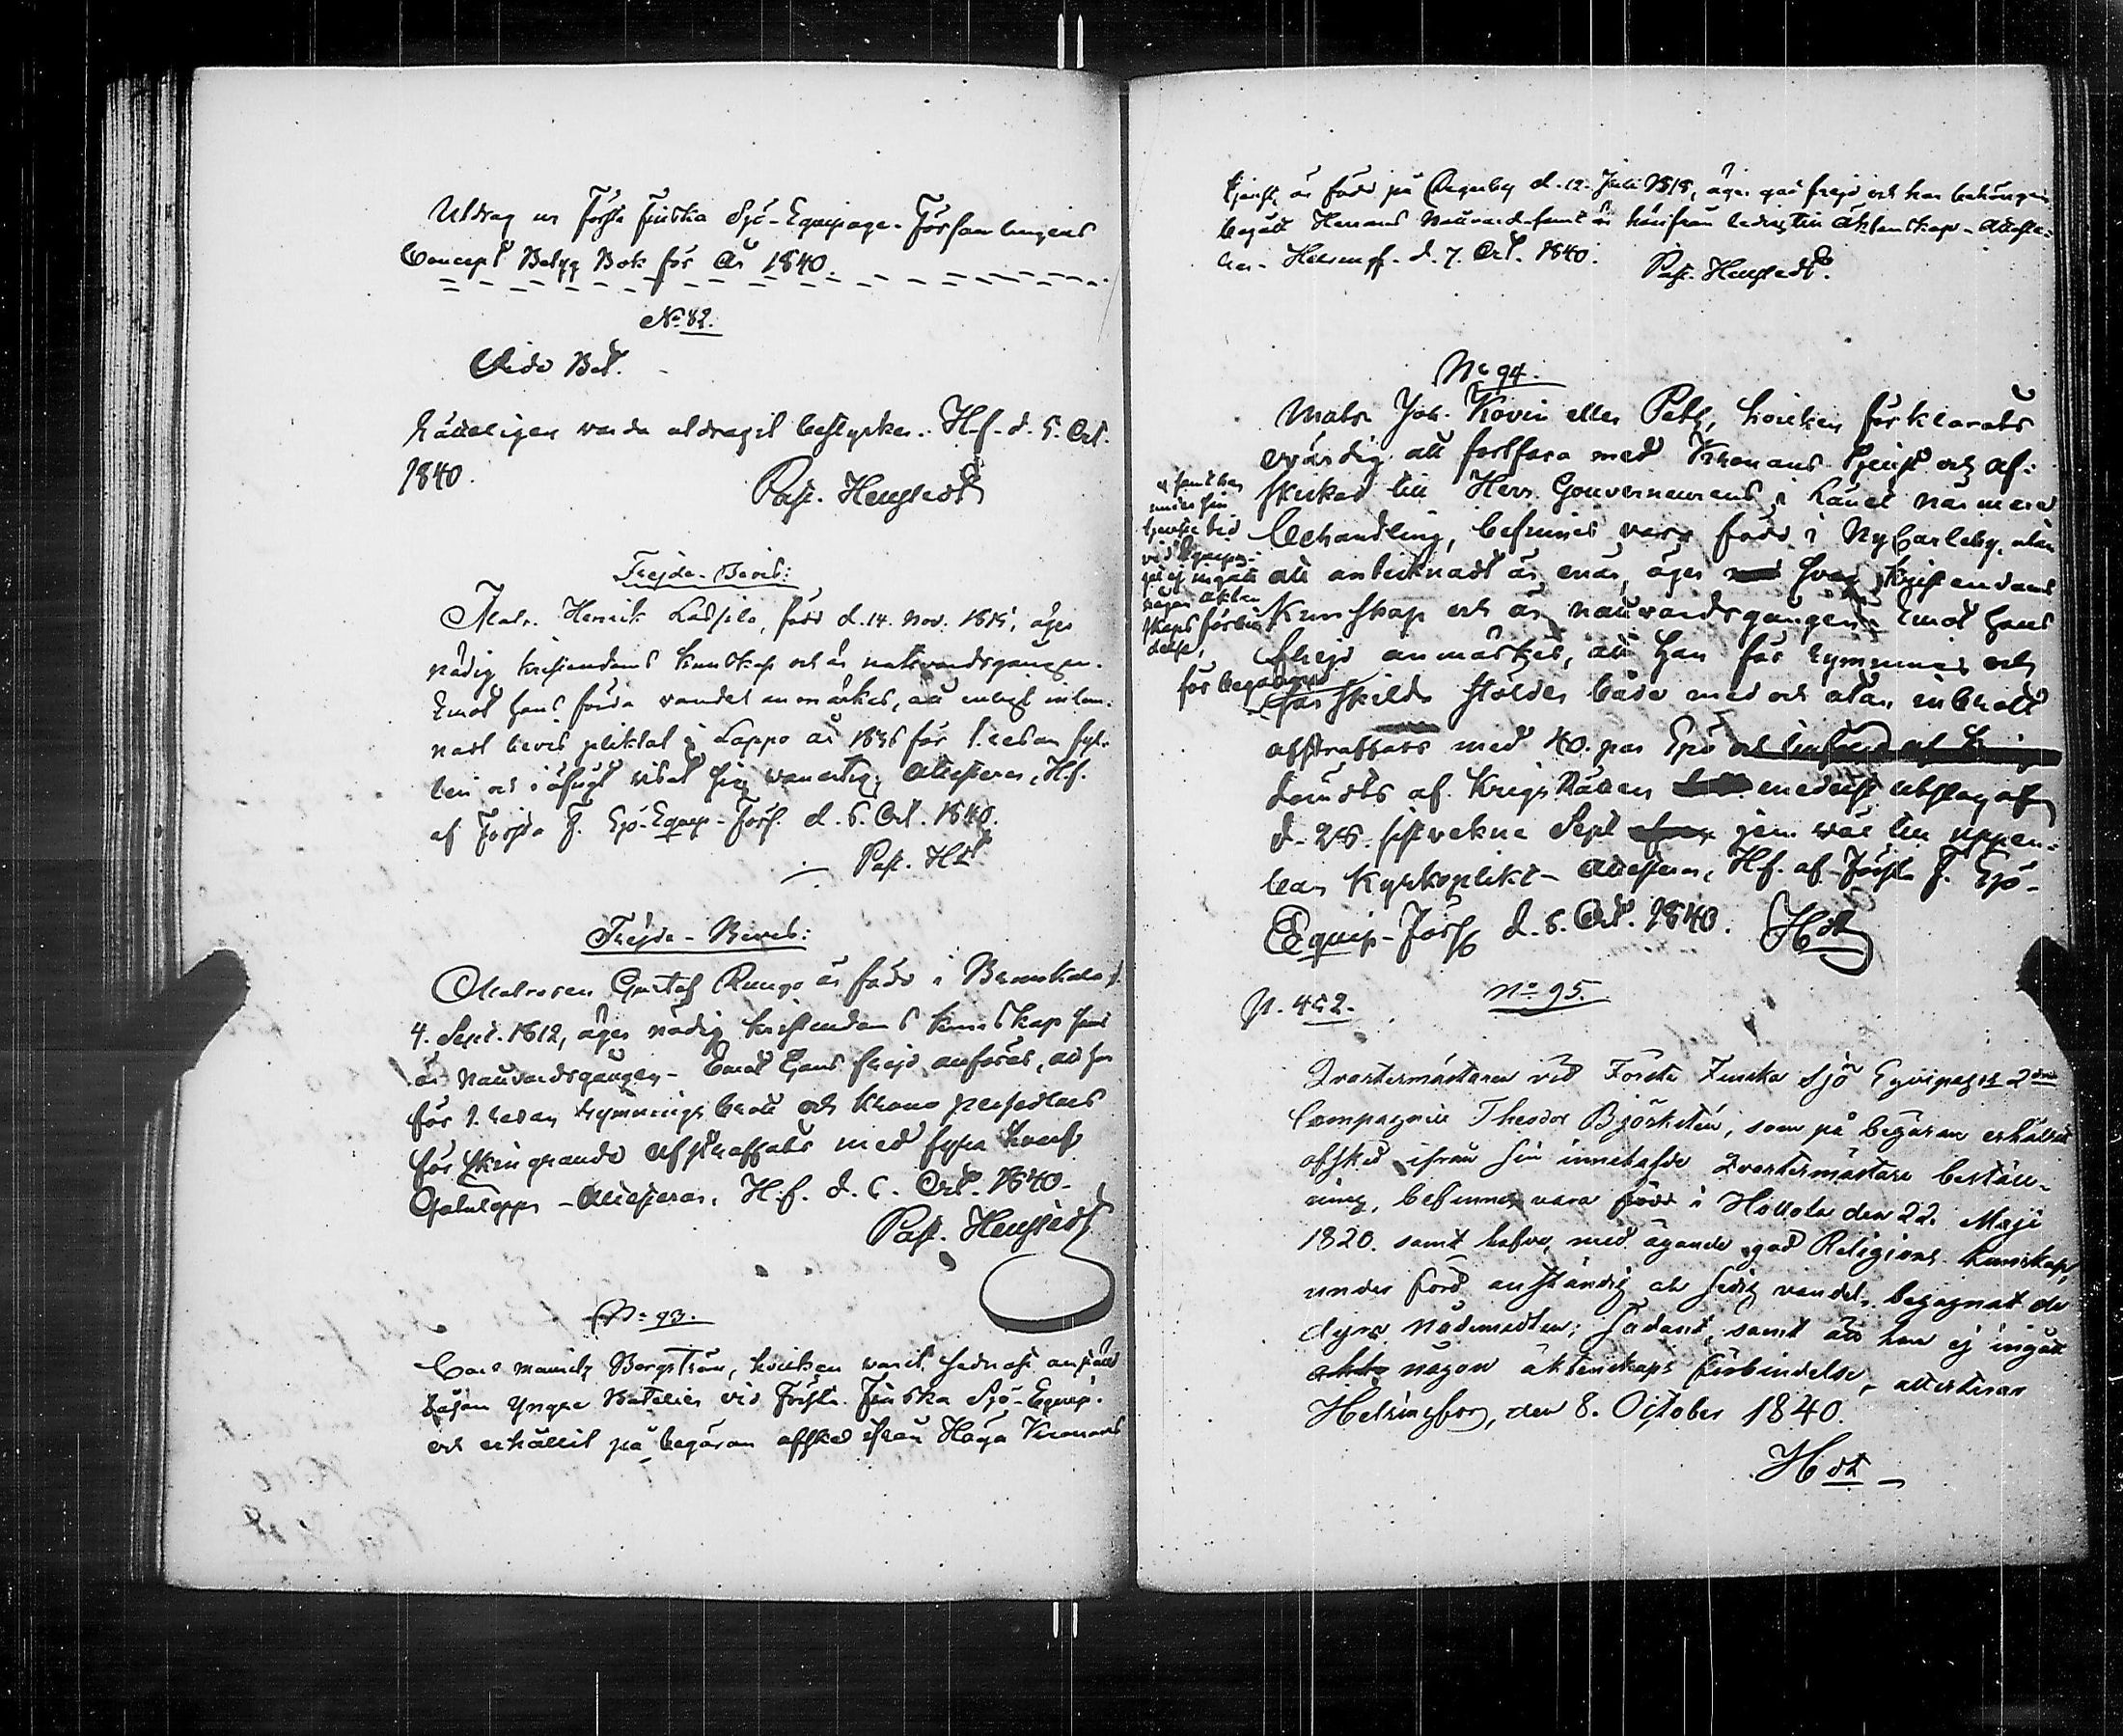 Utdrag ur Första Finska Sjö-Equipage-Församlingens
Concept Betyg Bok för År 1840.
No 82.
Vide Bet.
Rätteligen vara utdraget bestyrker. H.f. d. 5. Oct.
1840.
Past. Hengstedt
Frejde-Bevis:
Matr. Henrik Lassila, född d. 14. Nov. 1815, äger
nödig kristendoms kunskap och är nattvardsgången.
Emot hans förda vandel anmärkes, att enligt inläm-
nadt bevis pliktat i Lappo år 1836 för 1. resan fyl-
leri och i öfrigt visat sig vanartig, attesteras, H.f.
af Första F. Sjö-Equip-Förs. d. 6. Oct. 1840.
Past. Hdt
Frejde-Bevis:
Matrosen Gustaf Rungo är född i
4. Sept. 1812, äger nödig kristendoms kunskap samt
är Nattvardsgången - Emot hans frejd anföres, att han
för 1. resan rymnings brott och Krono persedlars
förskingrande afstraffats med fyra hvarf
Gatulopp - Attesteras. H.f. d. 6. Oct. 1840.
Past. Hengstedt
No 93.
Carl Mauritz Bergström, hvilken varit sednast anstäld
såsom yngre Batelier vid Första Finska Sjö-Equip.
och erhållit på begäran afsked ifrån Höga Kronans
tjenst, är född på Degerby d. 12. Juli 1818, äger god frejd och har behörigen
begått Herrans Nattvard samt är härifrån ledig till Äktenskap - Atteste-
ras - Helsingf. d. 7. Oct. 1840.
Past. Hengstedt.
No 94.
Matr. Joh. Kovin eller Petz, hvilken förklarats
ovärdig att fortfara med Kronans tjenst och af-
skickas till Herr Gouverneurens i Länet närmare
behandling, befinnes vara född i NyCarleby, utan
att antecknadt är, enär, äger svag Kristendoms
Kunskap och är nattvardsgången. Emot hans
frejd anmärkes, att han för rymning och
särskilda stölder både med och utan inbrott
afstraffats med 40. par Spö och
dömdts af KrigsRätten medelst utslag af
d. 28. sistvekne Sept jemväl till uppen-
bar Kyrkoplikt - Attesteras, H.f. af Första F. Sjö-
Equip-Förs d. 6. Oct. 1840. Hdt
samt har
under sin
tjenste tid
vid Equipa-
get ej ingått
någon äkten
skaps förbin
delse,
för begångna
No 95.
P. 452.
Qvartermästaren vid Första Finska Sjö Eqvipagets 2dra
Compagnie Theodor Björkstén, som på begäran erhållit
afsked ifrån sin innehafde Qvartermästare beställ-
ning, befinnes vara född i Hollola den 22. Maji
1820. samt hafva, med ägande god Religions kunskap,
under förd anständig och sedlig vandel, begagnat de
dyra nådemedlen; Sådant, samt att han ej ingått
äkte någon äktenskaps förbindelse, attesterar
Helsingfors, den 8. October 1840.
Hdt